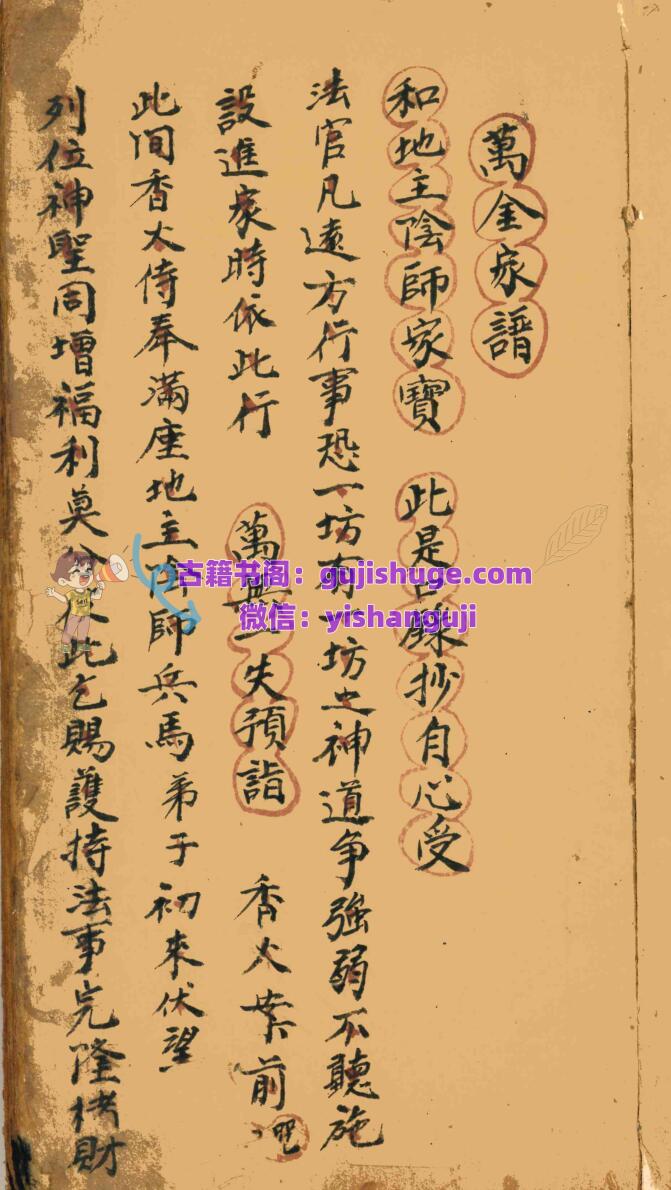 萬金家譜
和地主陰師家寶　此是口錄抄自心受
法官凡遠方行事恐一坊有一坊之神道爭強弱不聽施
設進家時依此行　萬無一失預詣　香火案前咒
此间香火侍奉滿座地主陰師兵馬弟子初來伏望
列位神聖同增福利莫分彼此乞賜護持法事完隆楮財
古籍书阁：gujishuge.com
微信：yishanguji